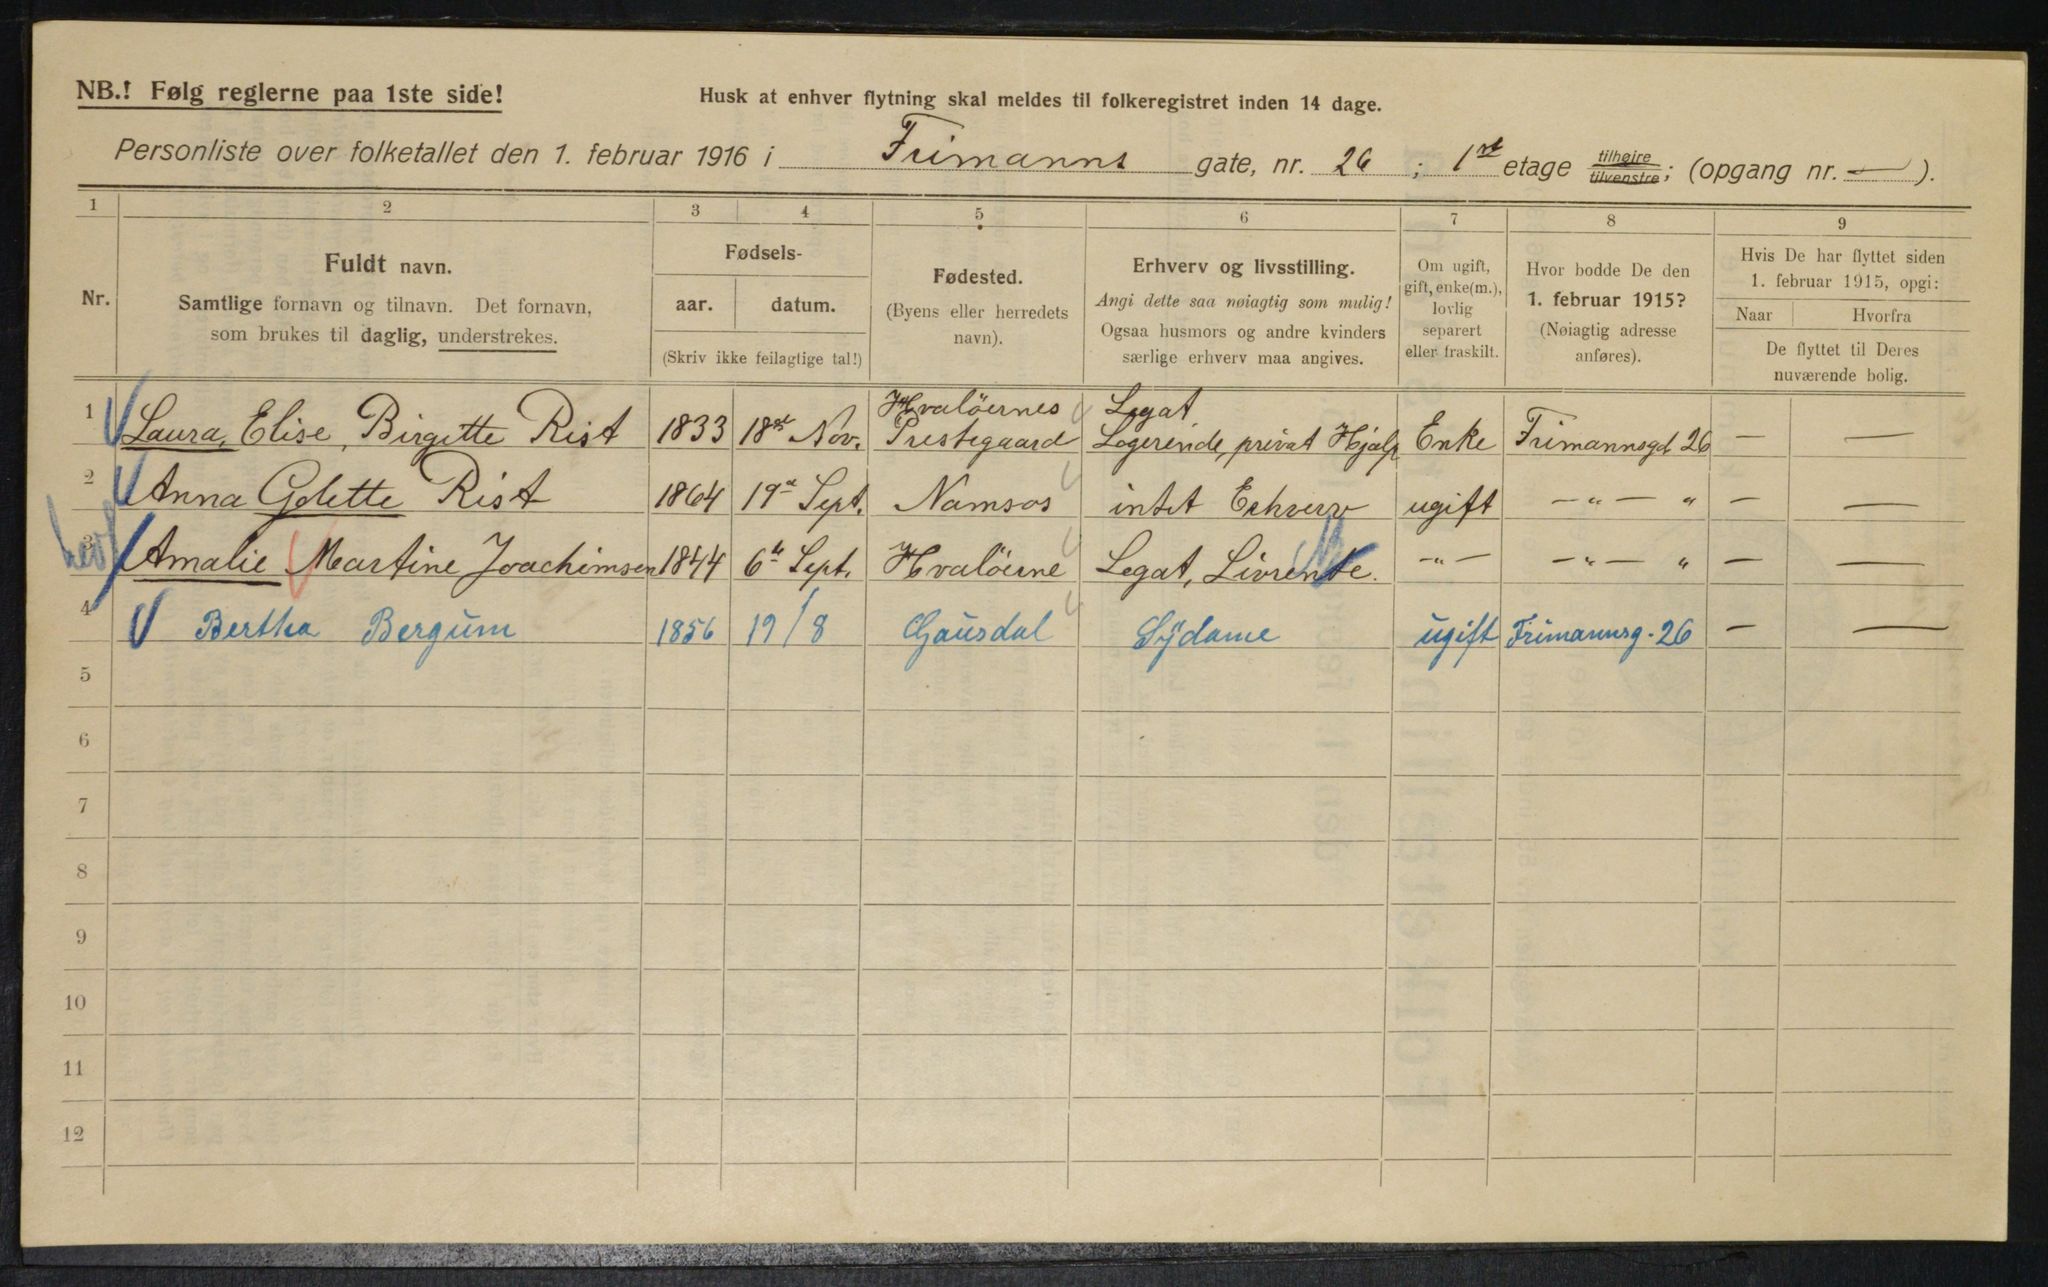 NB.! Følg reglerne paa 1ste side!
Husk at enhver flytning skal meldes til folkeregistret inden 14 dage.
Personliste over folketallet den 1. februar 1916 i Frimanns gate, nr. 26 ; 1ste etage tilhøire tilvenstre ; (opgang nr. — ).
1 2 3 4 5 6 7 8 9
Nr.
Fuldt navn.
Samtlige fornavn og tilnavn. Det fornavn,
som brukes til daglig, understrekes.
Fødsels-
aar. datum.
(Skriv ikke feilagtige tal!)
Fødested.
(Byens eller herredets
navn).
Erhverv og livsstilling.
Angi dette saa nøiagtig som mulig!
Ogsaa husmors og andre kvinders
særlige erhverv maa angives.
Om ugift,
gift, enke(m.),
lovlig
separert
eller fraskilt.
Hvor bodde De den
1. februar 1915?
(Nøiagtig adresse
anføres).
Hvis De har flyttet siden
1. februar 1915, opgi:
Naar Hvorfra
De flyttet til Deres
nuværende bolig.
1 Laura, Elise, Birgitte Rist 1833 18de Nov. Hvalöernes Prestegaard Legat Logerende, privat Hjælp Enke Frimannsgd 26 — —
2 Anna Golette Rist 1864 19de Sept. Namsos intet Erhverv ugift — " — " — —
3 Amalie Martine Joachimsen 1844 6te Sept. Hvalöerne Legat, Livrente. — " — — " — " — —
4 Bertha Bergum 1856 19/8 Gausdal Sydame ugift Frimannsg. 26 — —
5
6
7
8
9
10
11
12